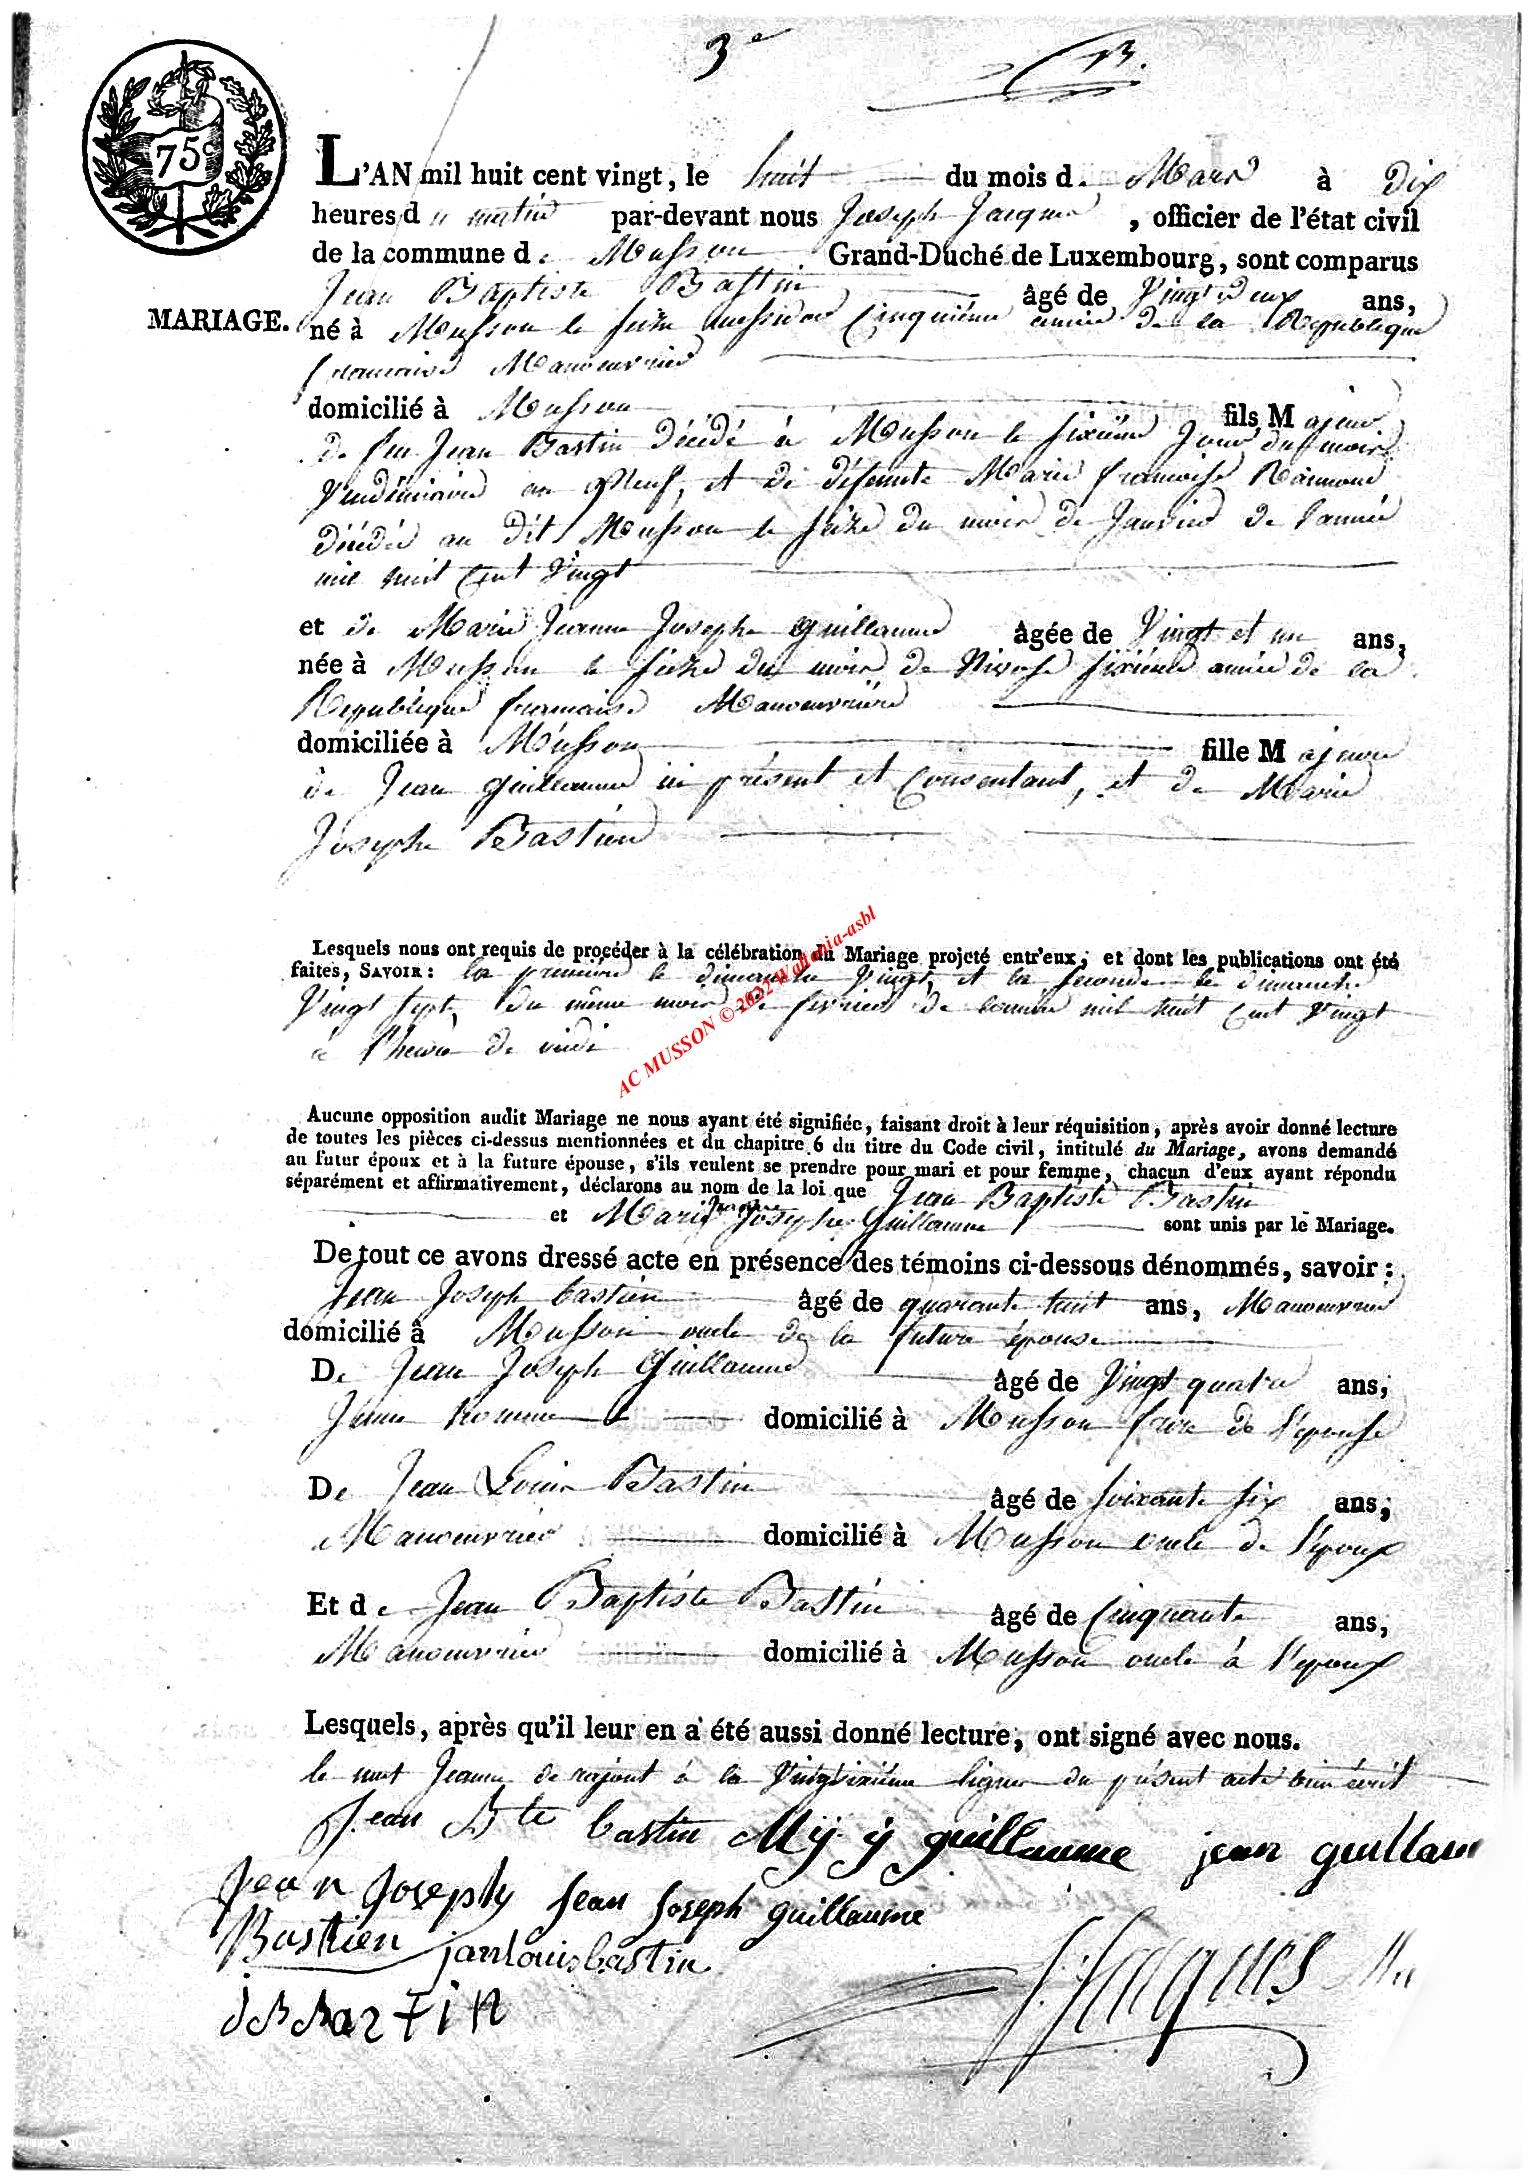 3e
B.
75c
L'AN mil huit cent vingt, le huit du mois de Mars à dix
heures du matin par-devant nous Joseph Jacques, officier de l'état civil
de la commune de Musson Grand-Duché de Luxembourg, sont comparus
Jean Baptiste Bastin âgé de Vingt deux ans,
MARIAGE.
né à Musson le seize messidor cinquième année de la République
francaise Manoeuvrier
domicilié à Musson fils Majeur
de feu Jean Bastin décédé à Musson le sixième jour du mois
Vendémiaire an Neuf, et de défunte Marie francoise Raimond
décédée au dit Musson le seize du mois de Janvier de l'année
mil huit cent vingt
et de Marie Jeanne Josephe Guillaume âgée de Vingt et un ans,
née à Musson le seize du mois de Nivose sixième année de la
République francaise Manoeuvrière
domiciliée à Musson fille Majeure
de Jean Guillaume ici présent et consentant, et de Marie
Josephe Bastien
Lesquels nous ont requis de procéder à la célébration du Mariage projeté entr'eux, et dont les publications ont été
faites, SAVOIR: la première le dimanche Vingt, et la seconde le dimanche
Vingt sept, du même mois de fevrier de l'année mil huit cent Vingt
à l'heure de midi
AC MUSSON © 2022 Wallonia-asbl
Aucune opposition audit Mariage ne nous ayant été signifiée, faisant droit à leur réquisition, après avoir donné lecture
de toutes les pièces ci-dessus mentionnées et du chapitre 6 du titre du Code civil, intitulé du Mariage, avons demandé
au futur époux et à la future épouse, s'ils veulent se prendre pour mari et pour femme, chacun d'eux ayant répondu
séparément et affirmativement, déclarons au nom de la loi que Jean Baptiste Bastin
et Marie Jeanne Josephe Guillaume sont unis par le Mariage.
De tout ce avons dressé acte en présence des témoins ci-dessous dénommés, savoir:
Jean Joseph bastien âgé de quarante huit ans, Manoeuvrier
domicilié à Musson oncle de la future épouse
De Jean Joseph Guillaume âgé de Vingt quatre ans,
Jeune homme domicilié à Musson frère de l'épouse
De Jean Louis Bastin âgé de soixante six ans,
Manoeuvrier domicilié à Musson oncle de l'époux
Et de Jean Baptiste Bastin âgé de cinquante ans,
Manoeuvrier domicilié à Musson oncle à l'époux
Lesquels, après qu'il leur en a été aussi donné lecture, ont signé avec nous.
le mot Jeanne de rajout à la Vingtsixième ligne du présent acte bien écrit
Jean Bte bastin M j j guillaume jean guillaum
Jean Joseph Jean Joseph guillaume
Bastien janlouisbastin
J. Jacques
j B Bastin